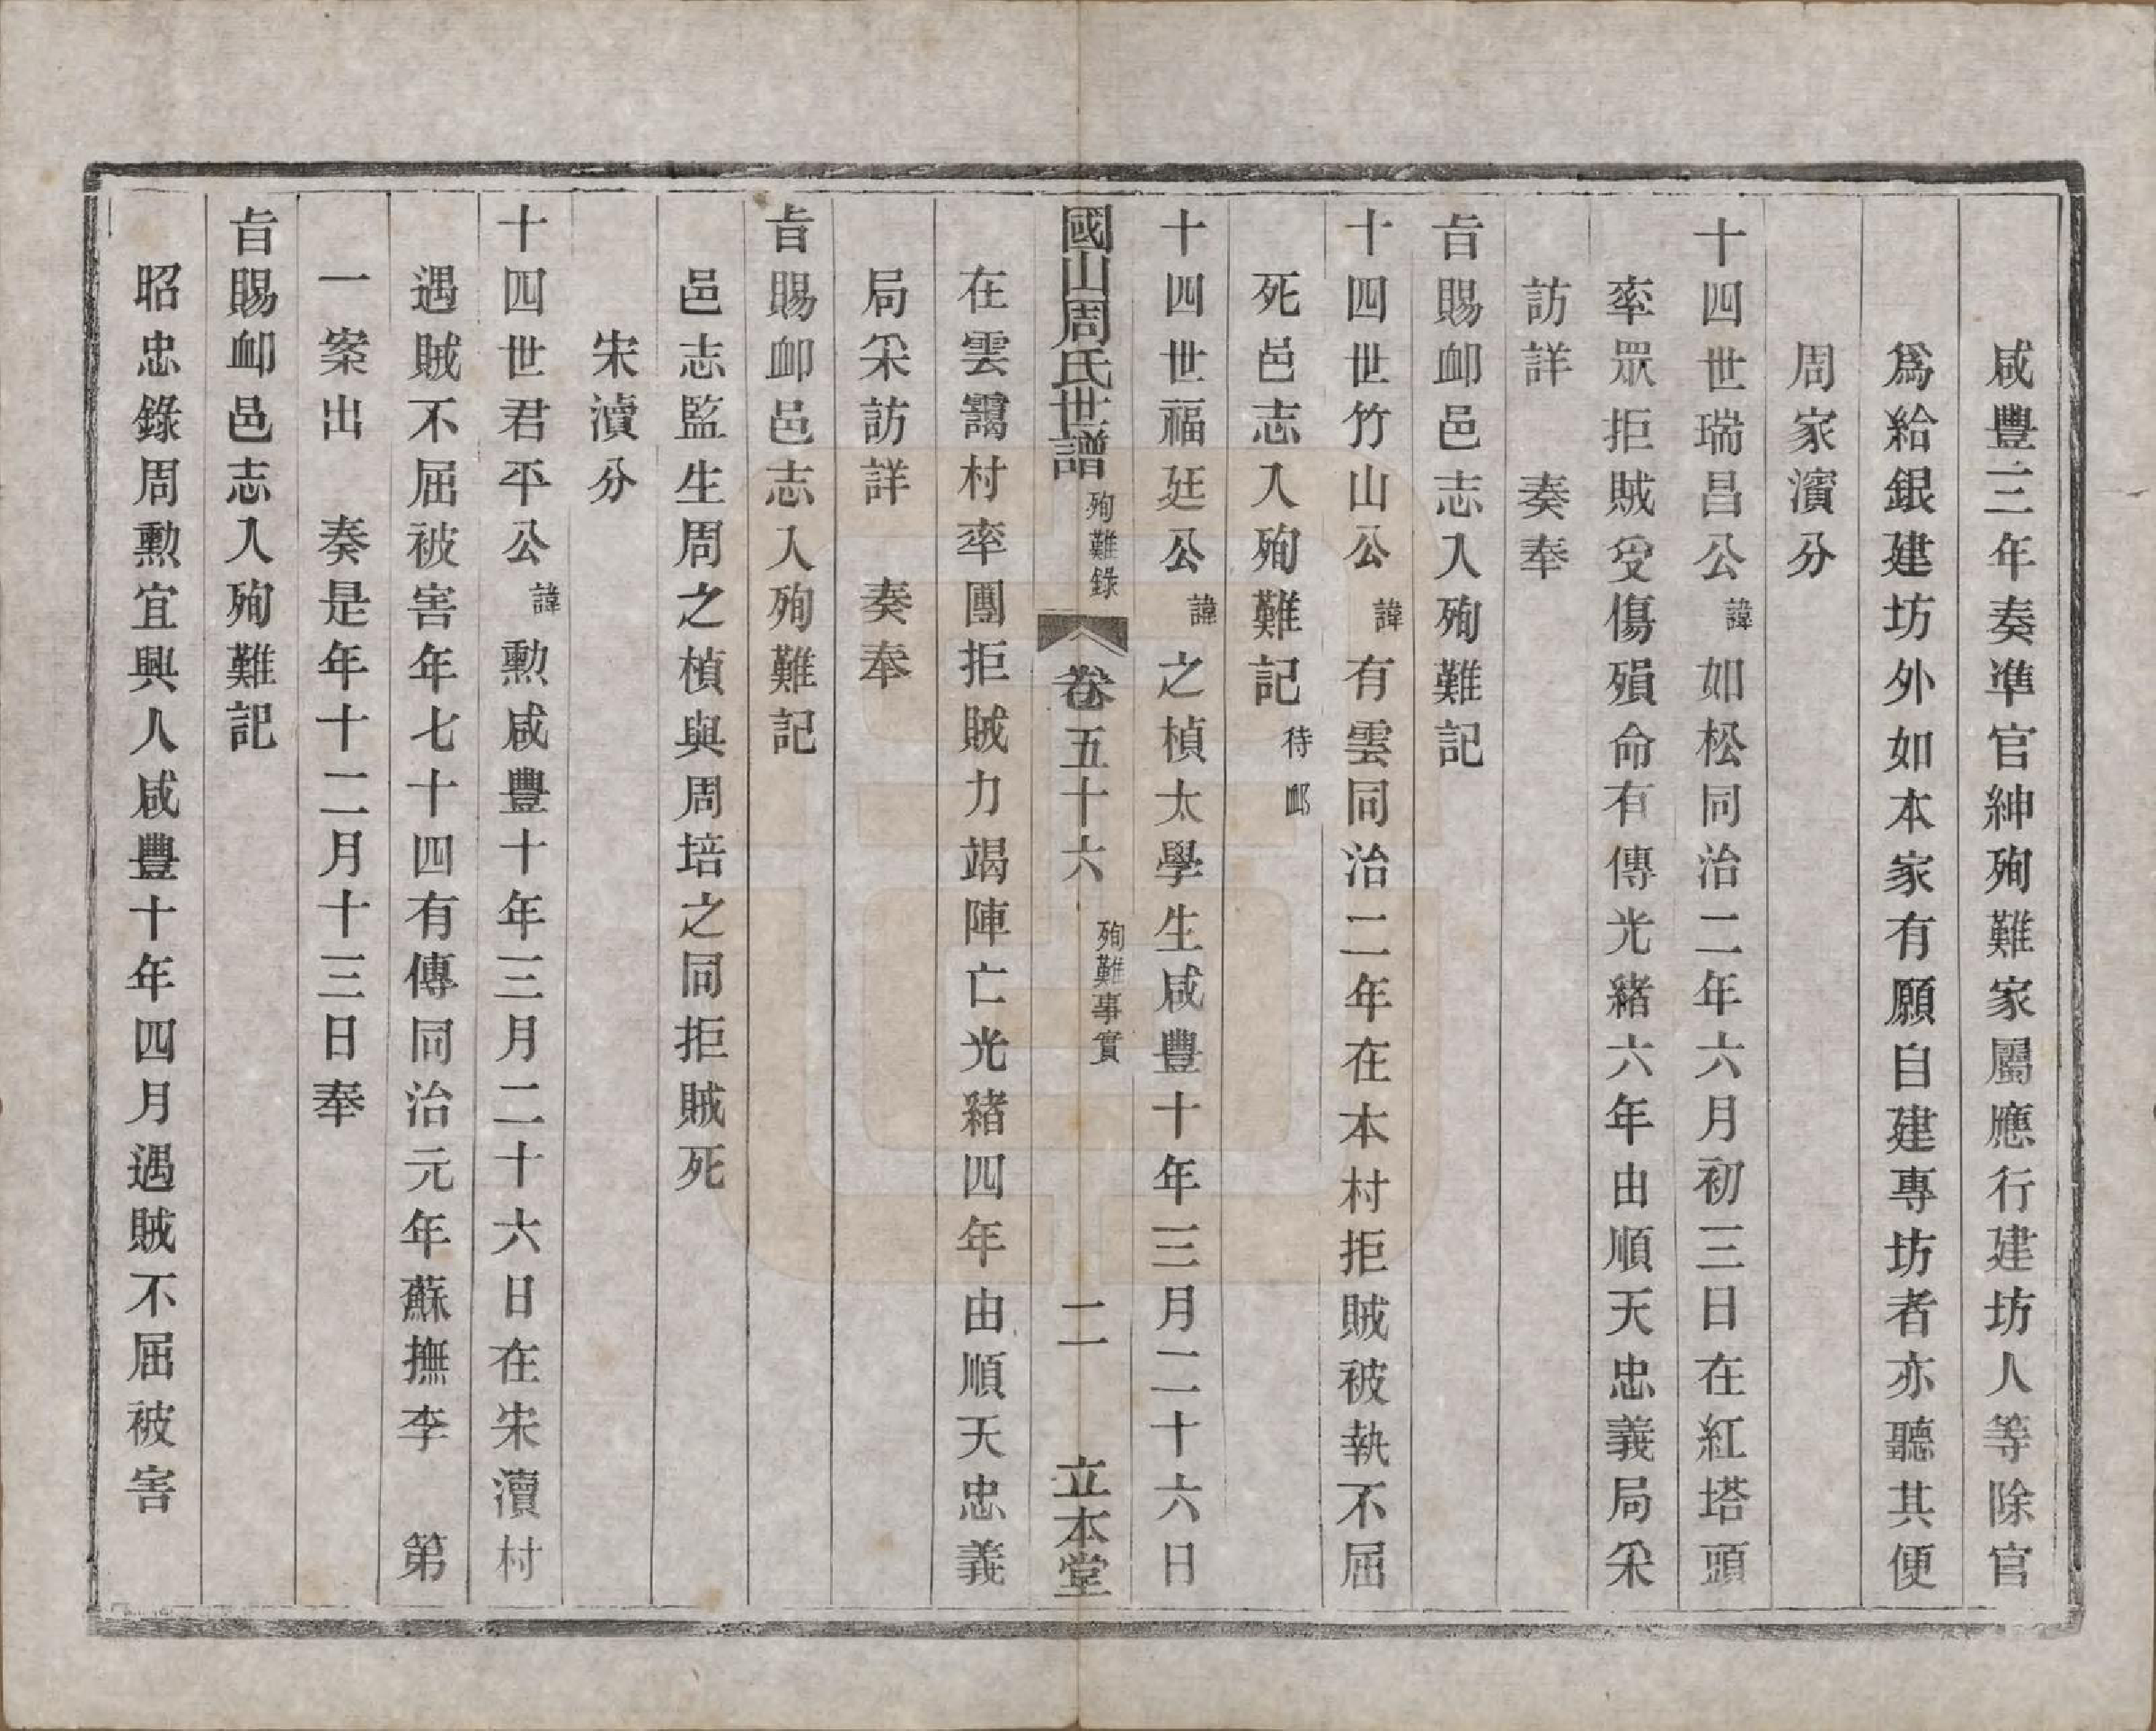 咸豐三年奏準官紳殉難家屬應行建坊人等除官
爲給銀建坊外如本家有願自建專坊者亦聽其便
周家濱分
十四世瑞昌公諱如松同治二年六月初三日在紅塔頭
率眾拒賊受傷殞命有傳光緒六年由順天忠義局采
訪詳　奏奉
旨賜卹邑志入殉難記
十四世竹山公諱有雲同治二年在本村拒賊被執不屈
死邑志入殉難記待卹
十四世福廷公諱之楨太學生咸豐十年三月二十六日
國山周氏世譜　殉難錄　卷五十六　殉難事實　二　立本堂
在雲靄村率團拒賊力竭陣亡光緒四年由順天忠義
局采訪詳　奏奉
旨賜卹邑志入殉難記
邑志監生周之楨與周培之同拒賊死
宋瀆分
十四世君平公諱勲咸豐十年三月二十六日在宋瀆村
遇賊不屈被害年七十四有傳同治元年蘇撫李　第
一案出　奏是年十二月十三日奉
旨賜卹邑志入殉難記
昭忠錄周勲宜興人咸豐十年四月遇賊不屈被害